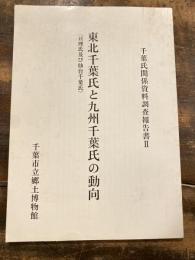 千葉氏関係資料調査報告書Ⅱ
東北千葉氏と九州千葉氏の動向
(亘理氏及び仙台千葉氏)
千葉市立郷土博物館